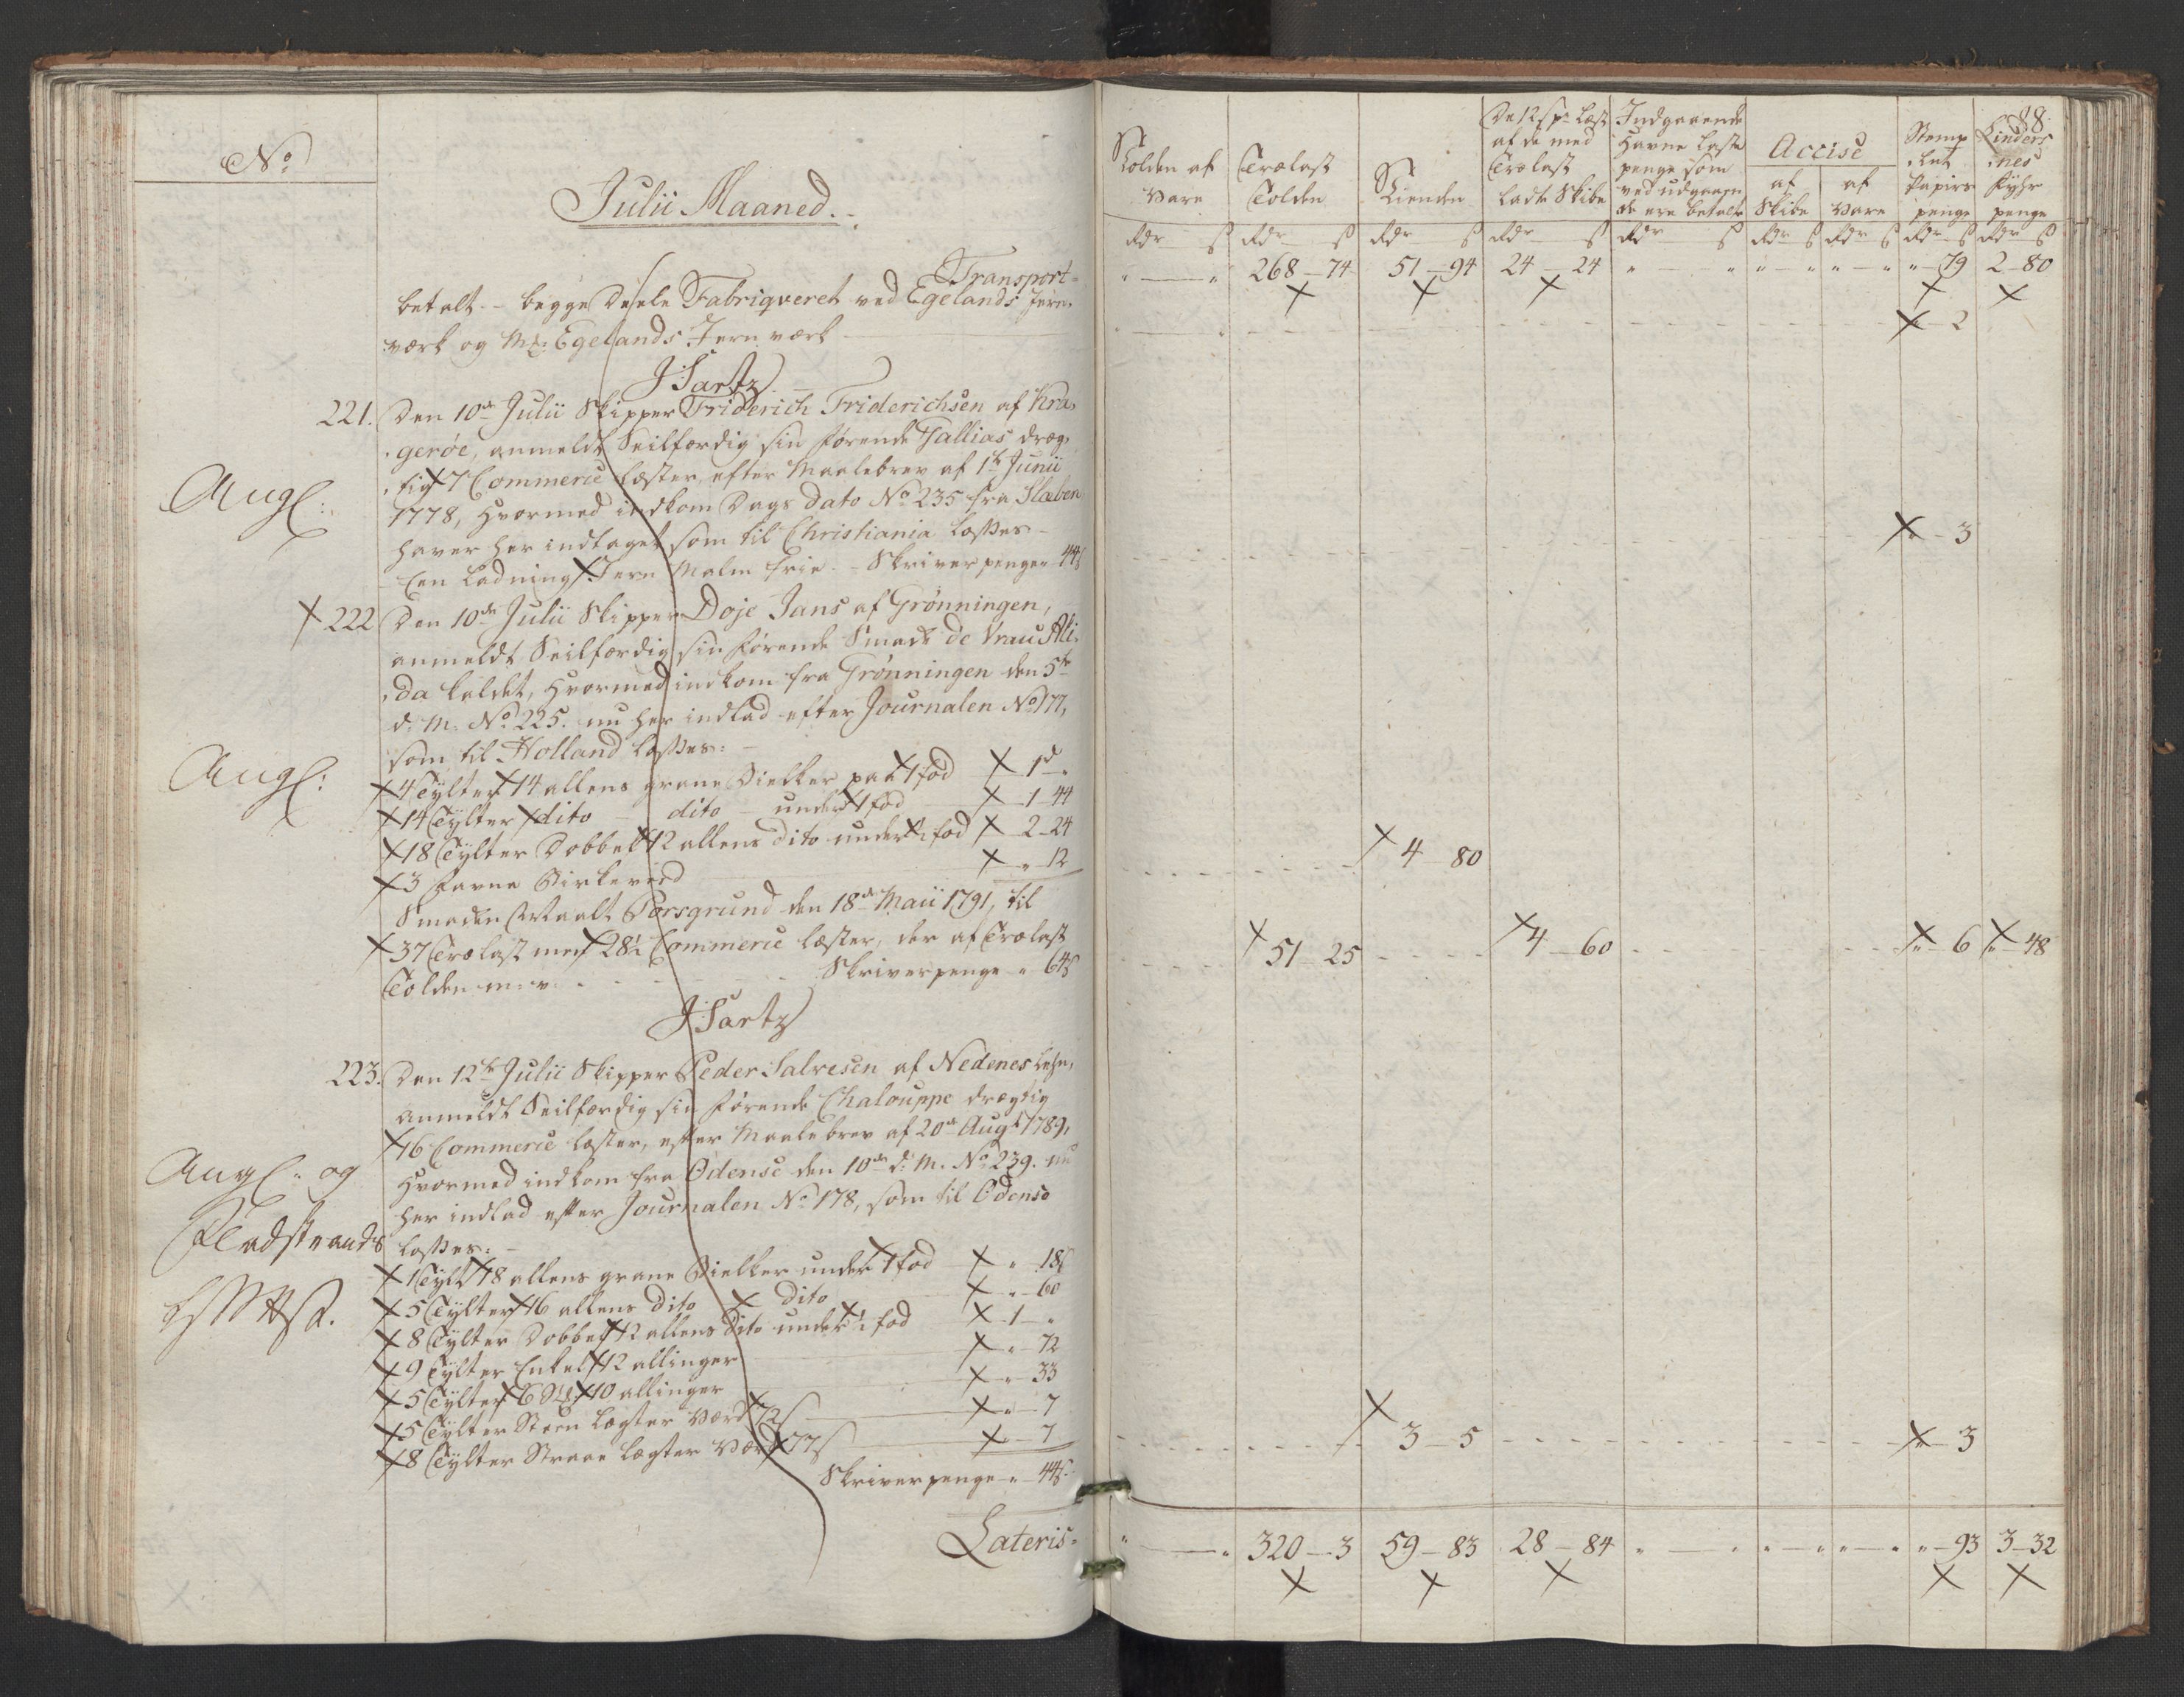 No
Julii Maaned.
Transport
betalt. - begge Deele Fabriqveret ved Egelands Jern-
værk og Mr: Egelands Jern værk
J Sartz
221. Den 10de Julii Skipper Friderich Friderichsen af Kra-
gerøe, anmeldt Seilfærdig sin førende Jallias dræg-
tig 7 Commerce Læster, efter Maalebrev af 1te Junii
Angl:
1778, hvormed indkom Dags Dato No 235 fra Slæben
haver her indtaget som til Christiania Losses
Een Ladning Jern Malm frie. - Skriver penge " 44ß
222 Den 10de Julii Skipper Doje Jans af Grønningen,
anmeldt Seilfærdig sin førende Smack de Vrau Ali-
da kaldet, hvormed indkom fra Grønningen den 5te
d: M: No 225. nu her indlad efter Journalen No 177,
som til Holland losses:
Angl:
4 Tylter 14 allens grane Bielker paa 1 fod 1 "
14 Tylter dito dito under 1 fod 1 44
18 Tylter Dobbelt 12 allens dito under ½ fod 2 - 24
3 Favne Birkeved " 12
Smacken Maalt Porsgrund den 18de Maii 1791, til
37 Trælast men 28½ Commerce læster, der af Trælast
Tolden m: v: Skriverpenge " 64ß
J Sartz
223. Den 12te Julii Skipper Peder Salvesen af Nedenes Lehn,
anmeldt Seilfærdig sin førende Chalouppe drægtig
16 Commerce læster, efter Maale brev af 20de Augt 1789,
Angl: og
hvormed indkom fra Odense den 10de d: M. No 239. nu
her indlad efter Journalen No 178, som til Odense
Fladstrands
losses:
1 Tylt 18 allens grane Bielker under 1 fod " 18ß
5 Tylter 16 allens dito dito " - 60
8 Tylter Dobbelt 12 allens dito under ½ fod 1 - "
9 Tylter Enkelt 12 allinger " - 72
5 Tylter 6 10 allinger " - 33
5 Tylter Steen Lægter værd 72ß " - 7
8 Tylter Straae Lægter værd 77ß " - 7
Skriverpenge " 44ß
Lateris
88.
Tolden af Vare
Trælast Tolden
Tienden
De 12 ß pr Læst af de med Trælast ladte Skibe
Indgaaende Havne Laste penge som ved udgaaende ere betalte
Accise
af Skibe
af Vare
Stemp-let Papirs penge
Linders-nes Fyhr penge
Rdr ß Rdr ß Rdr ß Rdr ß Rdr ß Rdr ß Rdr ß Rdr ß Rdr ß
" " 268 - 74 51 - 94 24 - 24 " " " " " " " - 79 2 - 80
" 2
" - 3
4 - 80
51 - 25 4 - 60 " - 6 " - 48
3 - 5 " - 3
" " 320 - 3 59 - 83 28 - 84 " " " " " " " - 93 3 - 32